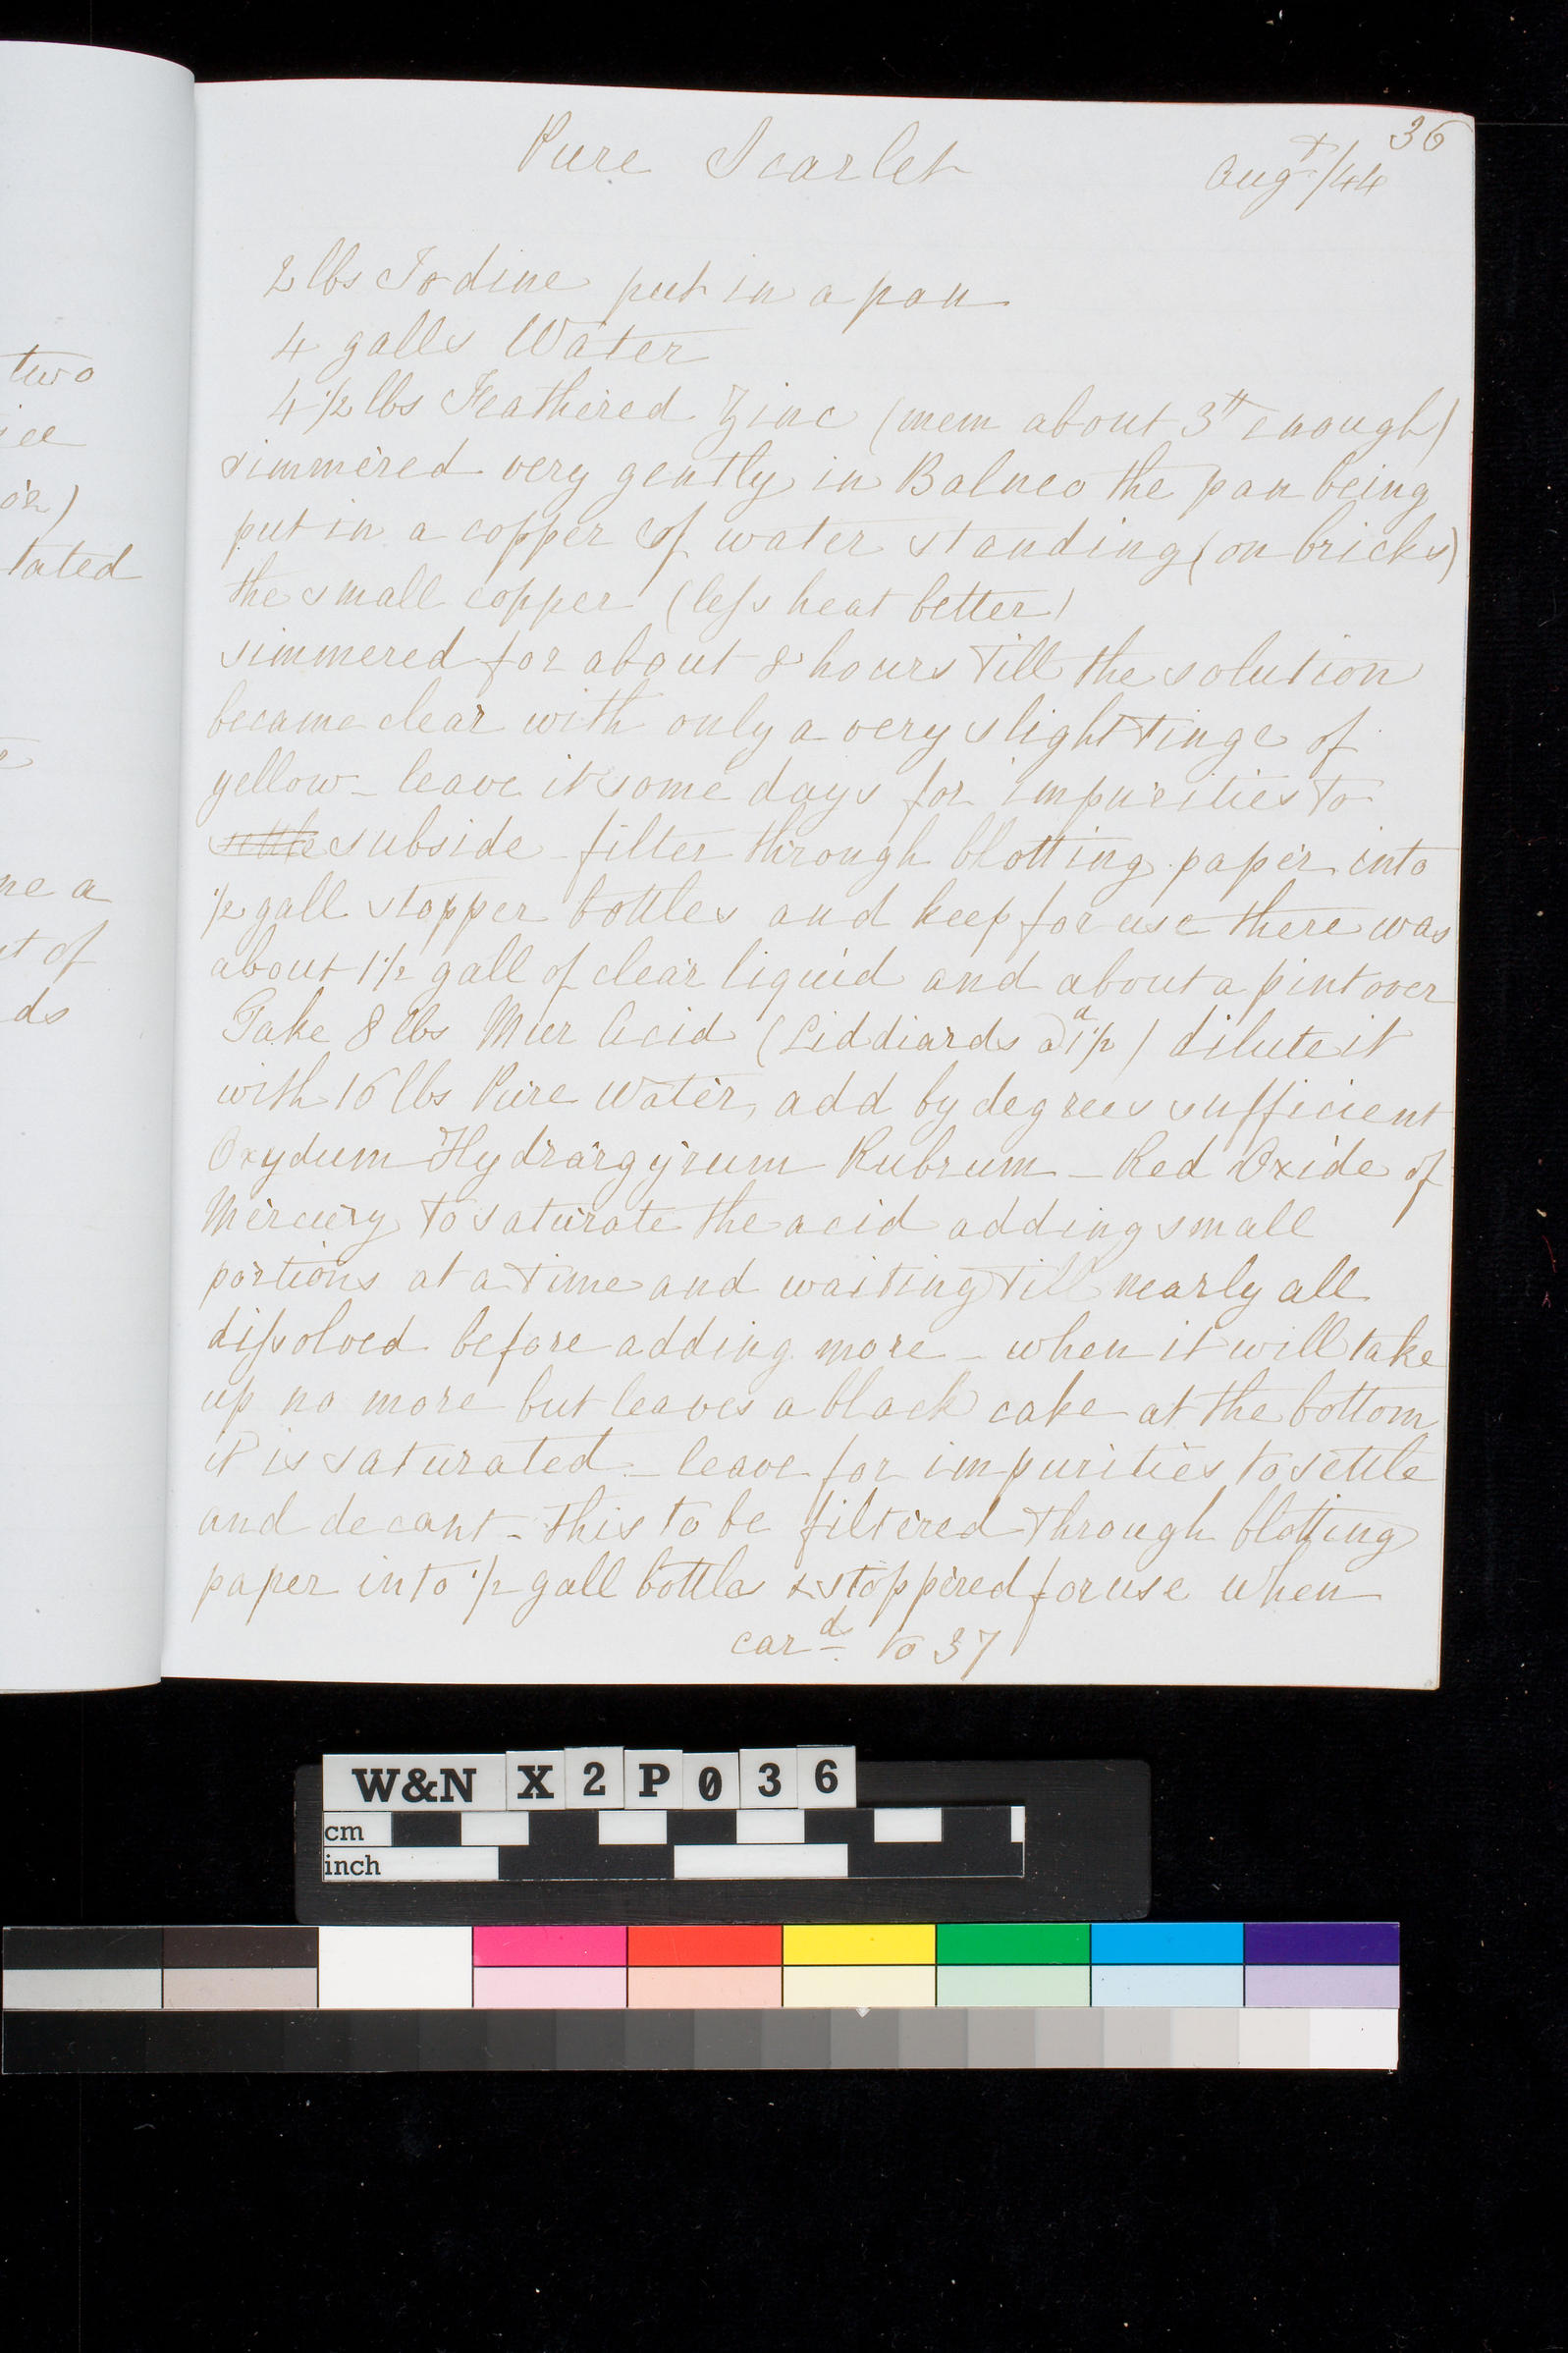 36
Pure Scarlet
Augt/44
2 lbs Iodine put in a pan
4 galls Water
4 1/2 lbs Feathered Zinc (mem about 3 lb enough)
simmered very gently in Balneo the pan being
put in a copper of water standing (on bricks)
the small copper (less heat better)
simmered for about 8 hours till the solution
became clear with only a very slight tinge of
yellow - leave it some days for impurities to
settle subside - filter through blotting paper into
1/2 gall stopper bottles and keep for use there was
about 1 1/2 gall of clear liquid and about a pint over
Take 8 lbs Mur Acid (Liddiards a 1d 1/2) dilute it
with 16 lbs Pure Water, add by degrees sufficient
Oxydum Hydrargyrum Rubrum - Red Oxide of
Mercury to saturate the acid adding small
portions at a time and waiting till nearly all
dissolved before adding more - when it will take
up no more but leaves a black cake at the bottom
it is saturated - leave for impurities to settle
and decant - this to be filtered through blotting
paper into 1/2 gall bottles & stoppered for use when
card to 37
two
ice
tated
ne a
t of
ds
W&N X2P036
cm
inch